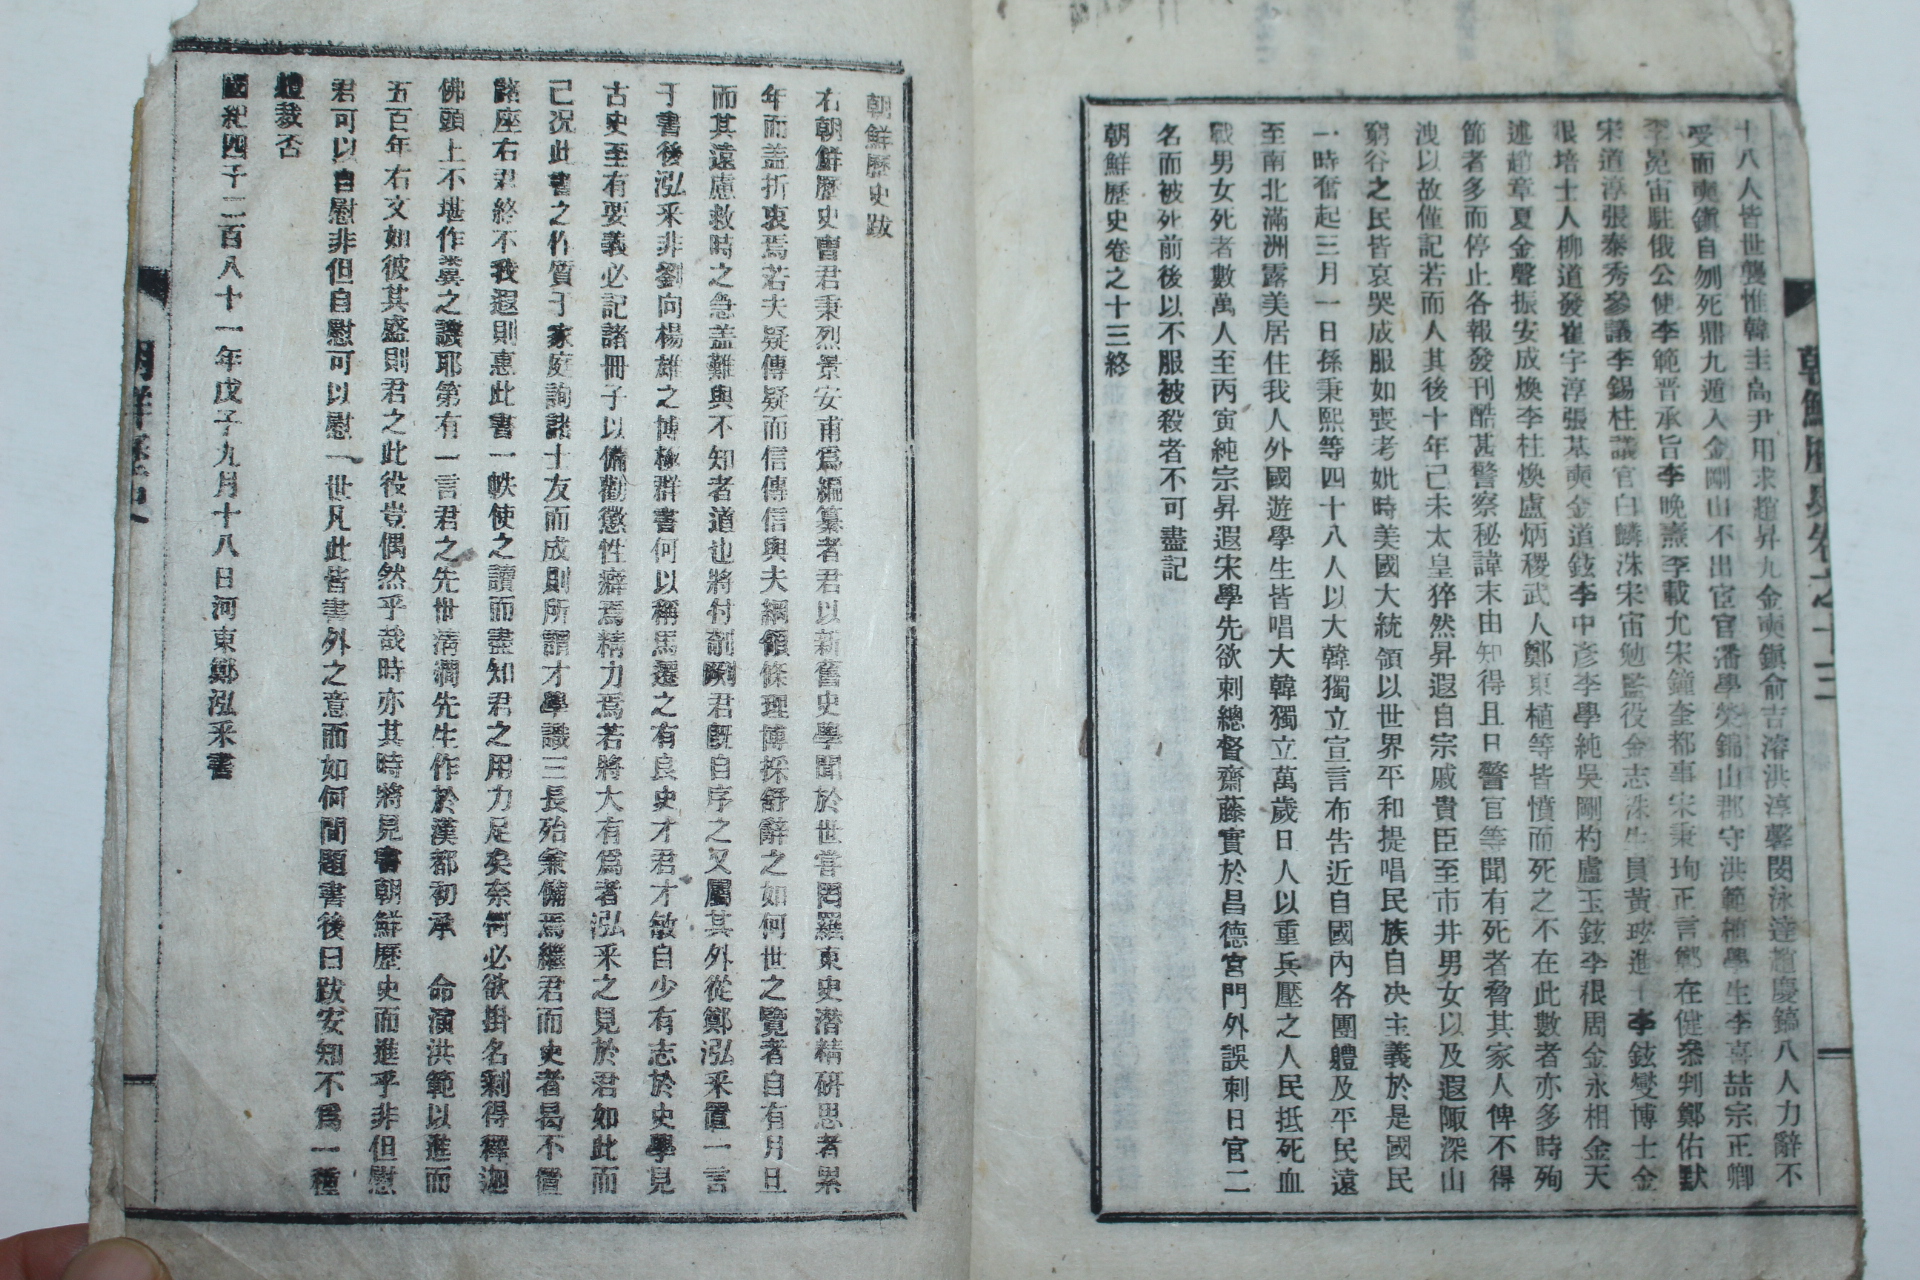 十八人皆世襲惟韓圭卨尹用求趙昇九金奭鎭俞吉濬洪淳馨閔泳達趙慶鎬八人力辭不
受而奭鎭自刎死鼎九遁入金剛山不出宦官潘學榮錦山郡守洪範植學生李喜喆宗正卿
李冕宙駐俄公使李範晋承旨李晩燾李載允宋鐘奎都事宋秉珣正言鄭在健叅判鄭佑默
宋道淳張泰秀參議李錫柱議官白麟洙宋宙勉監役金志洙生員黃玹進士李鉉燮博士金
根培士人柳道發崔宇淳張基奭金道鉉李中彦李學純吳剛杓盧玉鉉李根周金永相金天
述趙章夏金聲振安成煥李柱煥盧炳稷武人鄭東植等皆憤而死之不在此數者亦多時殉
節者多而停止各報發刊酷甚警察秘諱末由知得且日警官等聞有死者脅其家人俾不得
洩以故僅記若而人其後十年己未太皇猝然昇遐自宗戚貴臣至市井男女以及遐陬深山
窮谷之民皆哀哭成服如喪考妣時美國大統領以世界平和提唱民族自决主義於是國民
一時奮起三月一日孫秉熙等四十八人以大韓獨立宣言布告近自國內各團軆及平民遠
至南北滿洲露美居住我人外國遊學生皆唱大韓獨立萬歲日人以重兵壓之人民抵死血
戰男女死者數萬人至丙寅純宗昇遐宋學先欲刺總督齋藤實於昌德宮門外誤刺日官二
名而被死前後以不服被殺者不可盡記
朝鮮歷史卷之十三終
朝鮮歷史卷之十三
朝鮮歷史跋
右朝鮮歷史曺君秉烈景安甫爲編纂者君以新舊史學聞於世嘗悶羅東史潜精硏思者累
年而盖折衷焉若夫疑傳疑而信傳信與夫綱領條理博採舒辭之如何世之覽者自有月旦
而其遠慮救時之急盖難與不知者道也將付剞劂君旣自序之又屬其外從鄭泓采置一言
于書後泓采非劉向楊雄之博極群書何以稱馬遷之有良史才君才敏自少有志於史學見
古史至有要義必記諸冊子以備勸懲性癖焉精力焉若將大有爲者泓采之見於君如此而
已况此書之作質于家庭詢諸士友而成則所謂才學識三長殆兼備焉繼君而史者曷不置
諸座右君終不我遐則惠此書一帙使之讀而盡知君之用力足矣奈何必欲掛名剩得釋迦
佛頭上不堪作糞之譏耶第有一言君之先世淸澗先生作於漢都初承 命演洪範以進而
五百年右文如彼其盛則君之此役豈偶然乎哉時亦其時將見書朝鮮歷史而進乎非但慰
君可以自慰非但自慰可以慰一世凡此皆書外之意而如何間題書後曰跋安知不爲一種
軆裁否
國紀四千二百八十一年戊子九月十八日河東鄭泓采書
朝鮮歷史